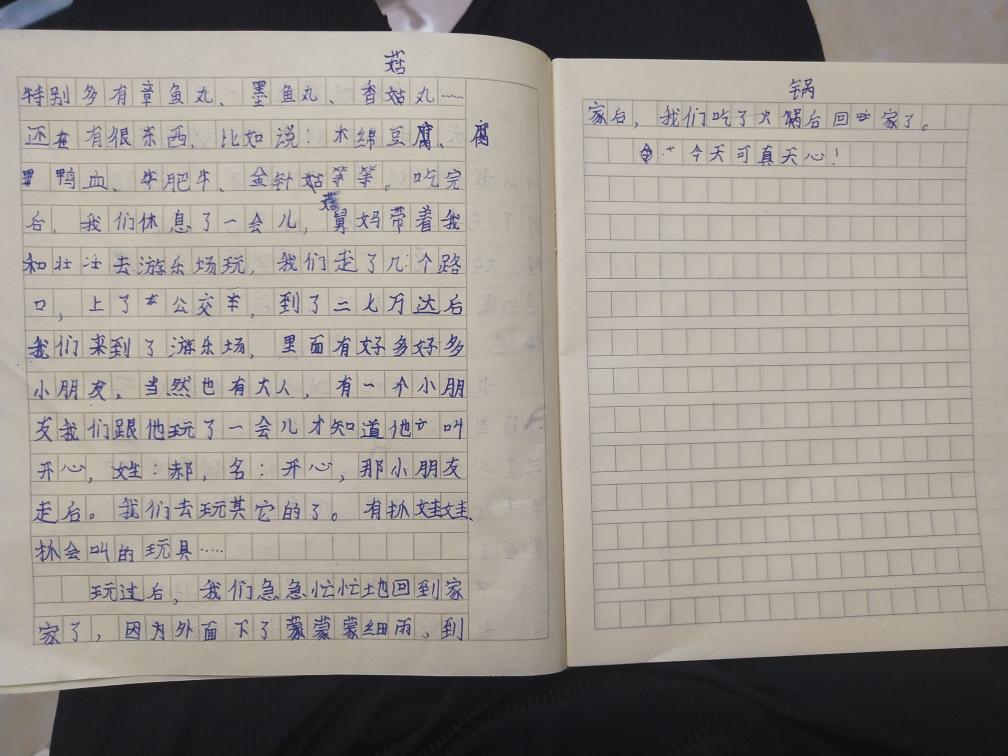 菇
特别多有章鱼丸、墨鱼丸、香菇丸……
还在有很东西，比如说：木绵豆腐、腐
鸭血、牛肥牛、金针菇等等。吃完
菇
后，我们休息了一会儿，舅妈带着我
和壮壮去游乐场玩，我们走了几个路
口，上了公交车，到了二七万达后
我们来到了游乐场，里面有好多好多
小朋友，当然也有大人，有一个小朋
友我们跟他玩了一会儿才知道他叫
开心，姓：郝，名：开心，那小朋友
走后。我们去玩其它的了。有抓娃娃、
抓会叫的玩具……
玩过后，我们急急忙忙地回到家
家了，因为外面下了蒙蒙蒙细雨，到
锅
家后，我们吃了火锅后回家了。
今天可真天心！